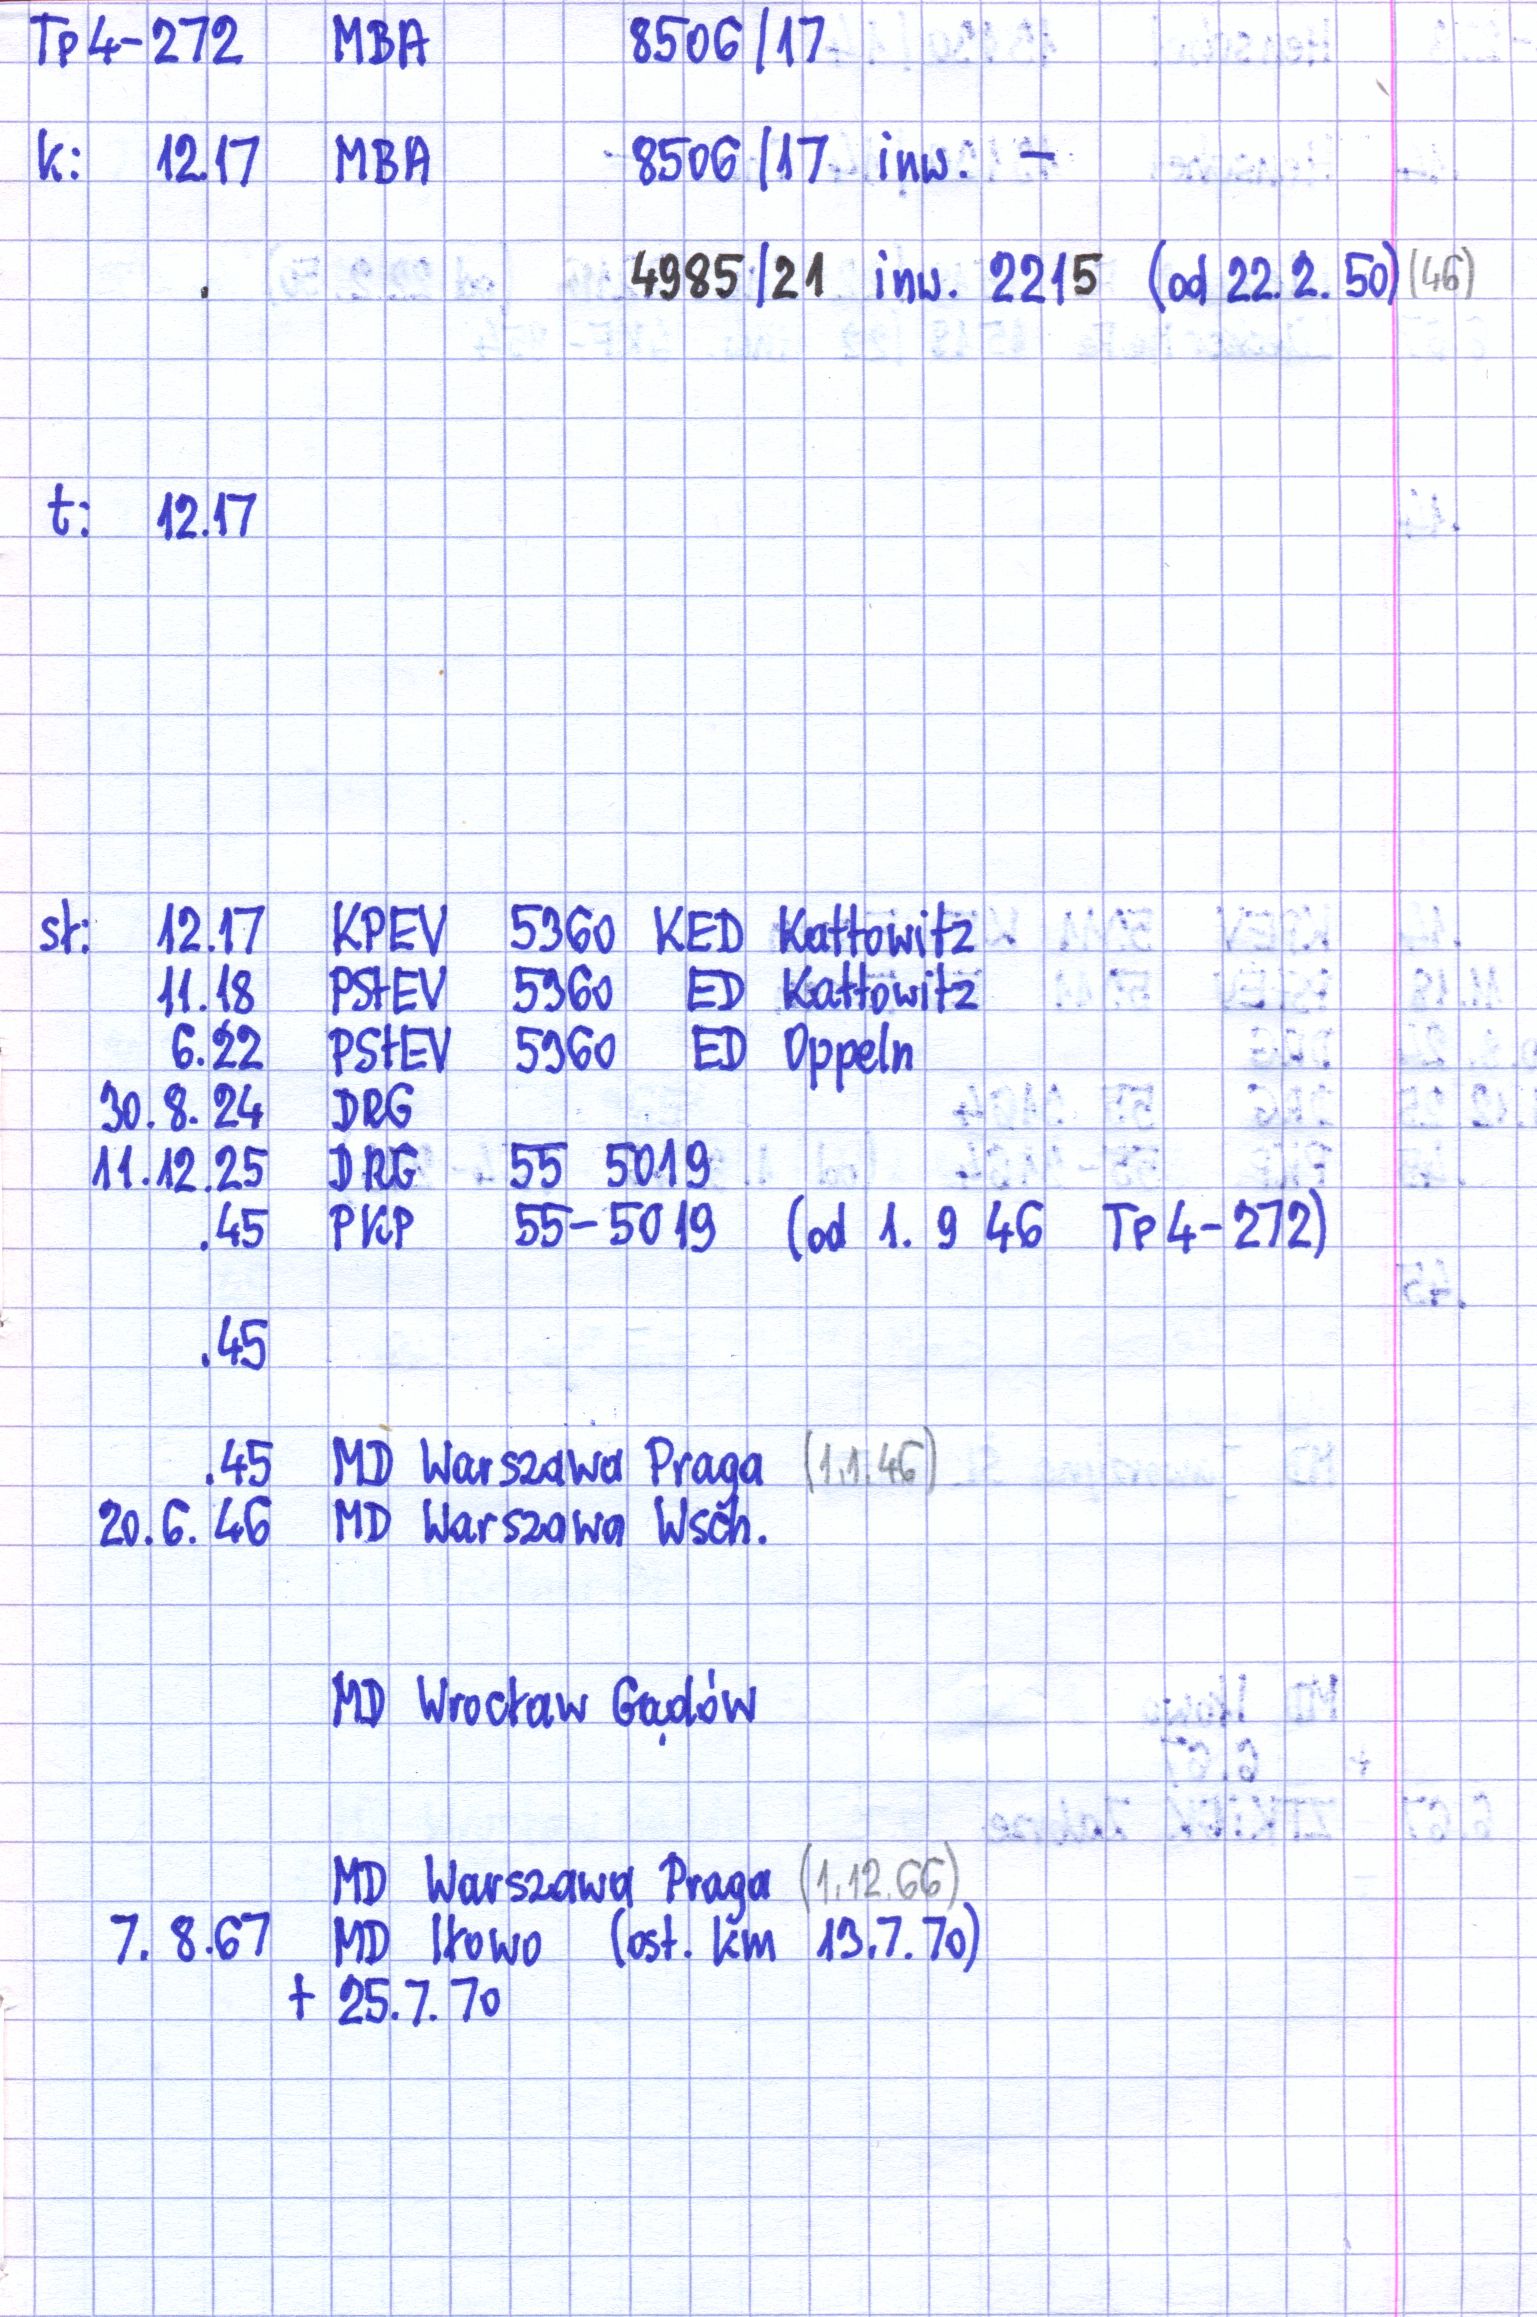 Tp4-272 MBA 8506/17
k: 12.17 MBA 8506/17 inw. -
. 4985/21 inw. 2215 (od 22.2.50) (46)
t: 12.17
st: 12.17 KPEV 5360 KED Kattowitz
11.18 PStEV 5360 ED Kattowitz
6.22 PStEV 5360 ED Oppeln
30.8.24 DRG
11.12.25 DRG 55 5019
.45 PKP 55-5019 (od 1. 9 46 Tp4-272)
.45
.45 MD Warszawa Praga (1.1.46)
20.6.46 MD Warszawa Wsch.
MD Wrocław Gądów
MD Warszawa Praga (1.12.66)
7.8.67 MD Iłowo (ost. km 13.7.70)
+ 25.7.70